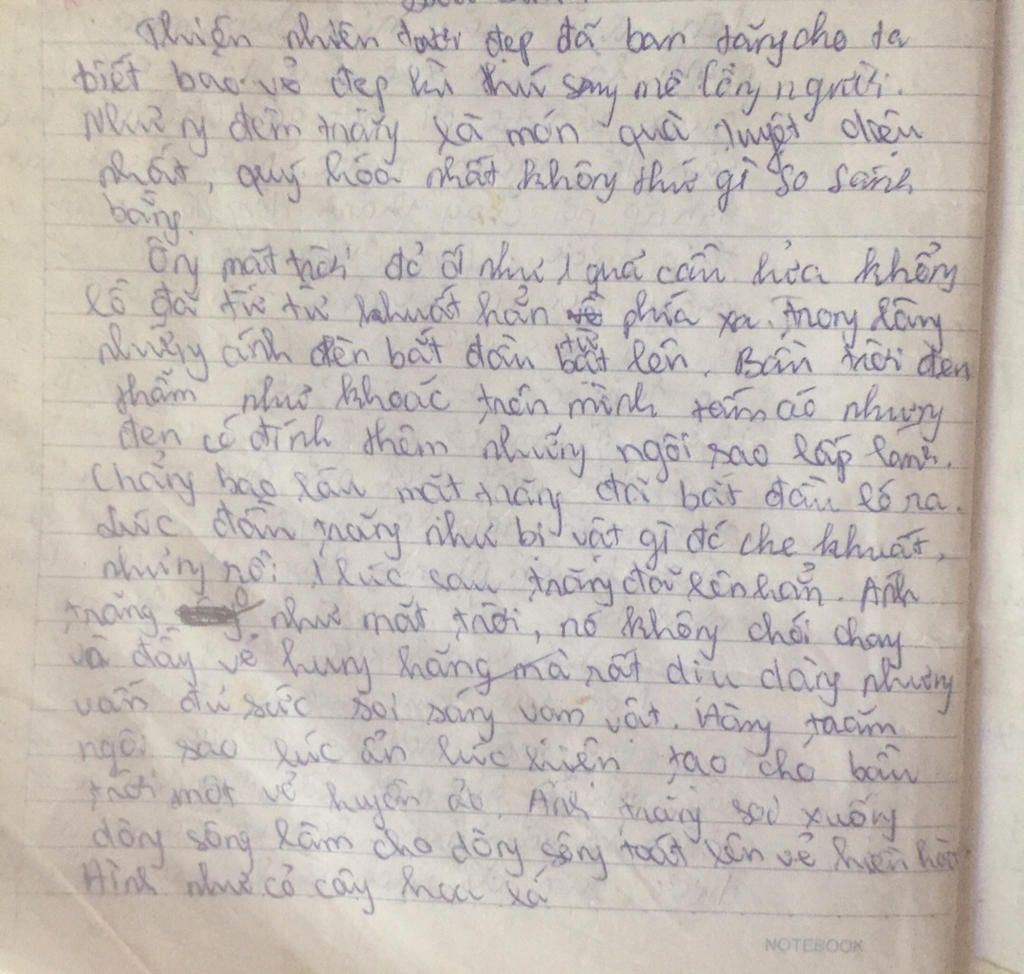 Thiên nhiên tươi đẹp đã ban tặng cho ta
biết bao vẻ đẹp kì thú say mê lòng người.
Những đêm trăng là món quà tuyệt diệu
nhất, quý hóa nhất không thứ gì so sánh
bằng.
Ông mặt trời đỏ ối như 1 quả cầu lửa khổng
lồ đã từ từ khuất hẳn về phía xa. Trong làng
những ánh đèn bắt đầu bật lên. Bầu trời đen
thẫm như khoác trên mình tấm áo nhung
đen có đính thêm những ngôi sao lấp lánh.
Chẳng bao lâu mặt trăng đã bắt đầu ló ra.
Lúc đầu trăng như bị vật gì đó che khuất,
nhưng rồi 1 lúc sau trăng đã lên hẳn. Ánh
trăng như mặt trời, nó không chói chang
và đầy vẻ hung hăng mà rất dịu dàng nhưng
vẫn đủ sức soi sáng vạn vật. Hàng trăm
ngôi sao lúc ẩn lúc hiện tạo cho bầu
trời một vẻ huyền ảo. Ánh trăng soi xuống
dòng sông làm cho dòng sông toát lên vẻ hiền hòa
Hình như cỏ cây hoa lá
NOTEBOOK